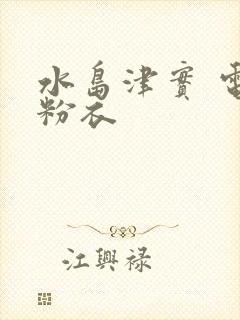 水島津實
粉衣
江興禄